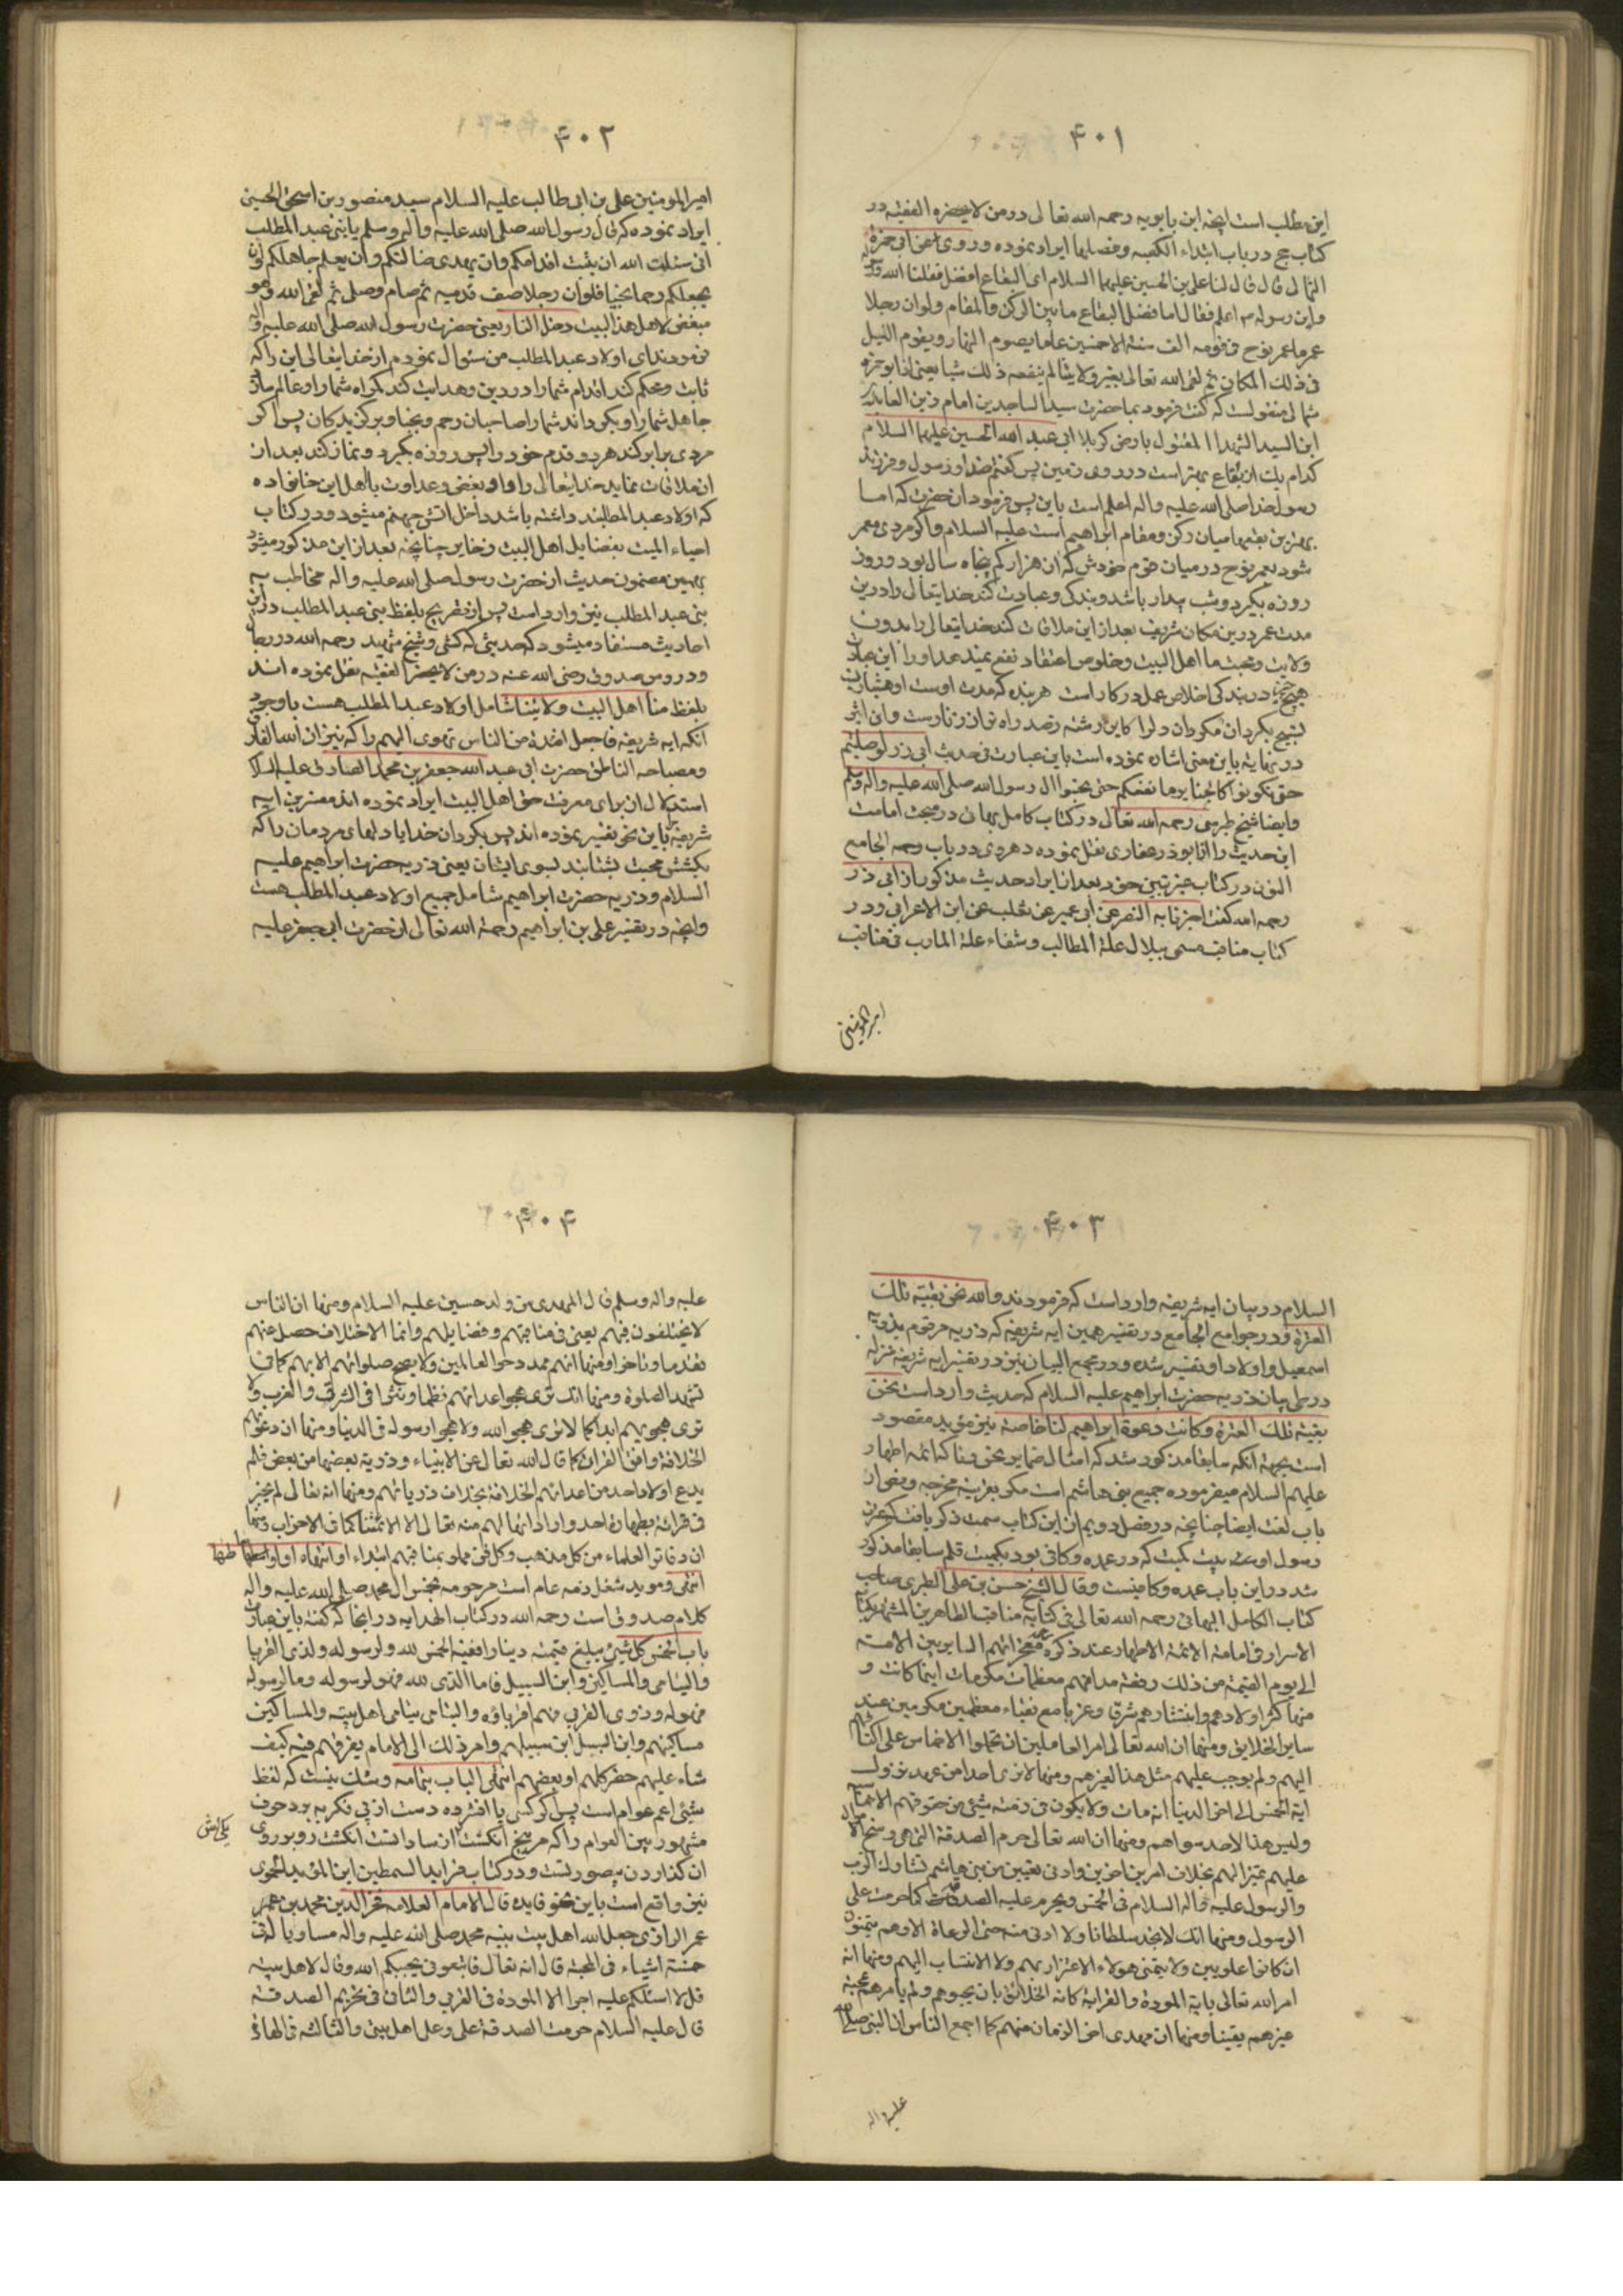 ۴۰۱
این مطلب است انچه ابن بابویه رحمه الله تعالی در من لا یحضره الفقیه در
کتاب حج در باب ابتداء الکعبه وفضلها ایراد نموده وروی عن ابی حمزة
الثمالی قال قال لنا علی بن الحسین علیهما السلام ای البقاع افضل فقلنا الله
وابن رسوله اعلم فقال اما فضل البقاع ما بین الرکن والمقام ولو ان رجلا
عمر ما عمر نوح فی قومه الف سنة الا خمسین عاما یصوم النهار ویقوم اللیل
فی ذلک المکان ثم لقی الله تعالی بغیر ولایتنا لم ینفعه ذلک شیا یعنی از ابو حمزه
ثمالی منقولست که گفت فرمود بما حضرت سید الساجدین امام زین العابدین
ابن السید الشهدا المقتول بارض کربلا ابی عبد الله الحسین علیهما السلام
کدام یک از بقاع بهتر است در روی زمین پس گفتم خدا و رسول و فرزند
رسول خدا صلی الله علیه واله اعلم است باین پس فرمود ان حضرت که اما
بهترین بقعها میان رکن ومقام ابراهیم است علیه السلام واکر مردی معمر
شود بعمر نوح در میان قوم خودش که ان هزار کم پنجاه سال بود و روز
روزه بکیرد وشب بیدار باشد وبندکی وعبادت کند خدایتعالی را درین
مدت عمر درین مکان شریف بعد از این ملاقات کند خدایتعالی را بدون
ولایت ومحبت ما اهل البیت وخلوص اعتقاد نفع نمیدهد او را این عبادت
هیچ در بندکی اخلاص عمل درکار است هر بنده که مدت اوست او هشیار
بتسبیح بکردان مکردان دلرا کاین رشته بصد راه توان زنارست وابن اثیر
در نهایه باین معنی اشاره نموده است باین عبارت فی حدیث ابی ذر لو صلیتم
حتی تکونوا کالحنایر ما نفعکم حتی تحبوا ال رسول الله صلی الله علیه واله وسلم
وایضا شیخ طبرسی رحمه الله تعالی در کتاب کامل بهائی در مبحث امامت
این حدیث را از ابوذر غفاری نقل نموده و هروی در باب وجمه الجامع
النون در کتاب غریبین خود بعد از ایراد حدیث مذکور از ابی ذر
رحمه الله گفت اخبرنا به النضر عن ابی عمیر عن ثعلب عن ابن الاعرابی ودر
کتاب مناقب مسمی ببلال علة المطالب وشفاء علة المارب فی مناقب
امیر المومنین
۴۰۲
امیر المومنین علی بن ابی طالب علیه السلام سید منصور بن اسحق الحسینی
ایراد نموده که قال رسول الله صلی الله علیه واله وسلم یا بنی عبد المطلب
انی سئلت الله ان یثبت اقدامکم وان یهدی ضالتکم وان یعلم جاهلکم وان
یجعلکم رحما نجبا فلو ان رجلا صف قدمیه ثم صام وصلی ثم لقی الله وهو
مبغض لاهل هذا البیت دخل النار یعنی حضرت رسول الله صلی الله علیه واله
فرمودند ای اولاد عبد المطلب من سئوال نمودم از خدایتعالی این را که
ثابت ومحکم کند اقدام شما را در دین وهدایت کند کمراه شما را وعالم سازد
جاهل شما را وبکرداند شما را صاحبان رحم ونجبا وبرکزیدکان پس اکر
مردی برابر کند هر دو قدم خود را پس روزه بکیرد ونماز کند بعد از
ان ملاقات نماید خدایتعالی را واو بغض وعداوت با اهل این خانواده
که اولاد عبد المطلبند داشته باشد داخل اتش جهنم میشود ودر کتاب
احیاء المیت بفضایل اهل البیت ذخایر چنانچه بعد از این مذکور میشود
بهمین مضمون حدیث از حضرت رسول صلی الله علیه واله مخاطب به
بنی عبد المطلب نیز وارد است پس از تصریح بلفظ بنی عبد المطلب در این
احادیث مستفاد میشود که حدیثی که کشی وشیخ شهید رحمه الله در رجال
ودروس صدوق رضی الله عنه در من لا یحضر الفقیه نقل نموده اند
بلفظ منا اهل البیت ولایتنا شامل اولاد عبد المطلب هست با وجود
انکه ایه شریفه فاجعل افئدة من الناس تهوی الیهم را که نیز از اسد الغاب
ومصباحه الناطق حضرت ابی عبد الله جعفر بن محمد الصادق علیه السلام
استدلال ان برای معرفت حق اهل البیت ایراد نموده اند مفسرین ایه
شریفه باین نحو تفسیر نموده اند پس بکردان خدایا دلهای مردمان را که
بکشش محبت بشتابند بسوی ایشان یعنی ذریه حضرت ابراهیم علیه
السلام وذریه حضرت ابراهیم شامل جمیع اولاد عبد المطلب هست
وانچه در تفسیر علی بن ابراهیم رحمة الله تعالی از حضرت ابی جعفر علیه
۴۰۳
السلام در بیان ایه شریفه وارد است که فرمودند والله نحن بقیة تلک
العترة ودر جوامع الجامع در تفسیر همین ایه شریفه که ذریه مرقوم بذریه
اسمعیل واولاد او تفسیر شده ودر مجمع البیان نیز در تفسیر ایه شریفه منزله
در طی بیان ذریه حضرت ابراهیم علیه السلام که حدیث وارد است نحن
بقیة تلک العترة وکانت دعوة ابراهیم لنا خاصة نیز موید مقصود
است بجهة انکه سابقا مذکور شد که امثال ضمایر نحن وبنا که ائمه اطهار
علیهم السلام میفرموده جمیع بنی هاشم است مکر بقرینه مخرجه ومعنی از
باب لغت ایضا چنانچه در فصل دویم از این کتاب سمت ذکر یافت که عترت
رسول اوست بیت کمیت که در عمده وکافی بود بکمیت قلم سابقا مذکور
شد در این باب عمده وکافیست وقال الشیخ حسن بن علی الطبری صاحب
کتاب الکامل البهائی رحمه الله تعالی فی کتابه مناقب الطاهرین المشهور بکتاب
الاسرار فی امامة الائمة الاطهار عند ذکره معجزاتهم السایر بین الامته
الی یوم القیمة من ذلک رفعة مدافنهم معظمات مکرمات اینما کانت و
منها کثر اولادهم وانتشارهم شرقا وغربا مع نقباء معظمین مکرمین عند
سایر الخلایق ومنها ان الله تعالی امر العاملین ان یحملوا الاخماس علی اکتافهم
الیهم ولم یوجب علیهم مثل هذا لغیرهم ومنها لا نری احدا من عهد نزول
ایة الخمس الی اخر الدنیا انه مات ولا یکون فی ذمته شیئ من حقوقهم الاخماس
ولیس هذا لاحد سواهم ومنها ان الله تعالی حرم الصدقة التی هی وسخ الاموال
علیهم تمیزا لهم بخلاف امرین اخرین وادنی نقیبین من بنی هاشم تشارک الرب
والرسول علیه واله السلام فی الخمس ویحرم علیه الصدقات کما حرمت علی
الرسول ومنها انک لا تجد سلطانا ولا ادنی منه حتی الرعاة الا وهم یتمنون
ان کانوا علویین ولا یتمنی هولاء الاعتزار بهم ولا الانتساب الیهم ومنها انه
امر الله تعالی بایة المودة والقرابة کافة الخلائق بان یحبوهم ولم یامرهم بمحبة
غیرهم یقینا ومنها ان مهدی اخر الزمان منهم کما اجمع الناس ان النبی صلی الله
علیه واله
۴۰۴
علیه واله وسلم قال المهدی من ولد حسین علیه السلام ومنها ان الناس
لا یختلفون فیهم یعنی فی مناقبهم وفضایلهم وانما الاختلاف حصل عنهم
تقدما وتاخرا ومنها انهم ممدوحوا العالمین ولا یصح صلواتهم الا بهم کما فی
تشهد الصلوة ومنها انک تری هجو اعدائهم نظما ونثرا فی الشرق والغرب ولا
تری هجویهم ابدا کما لا تری هجو الله ولا هجو رسوله فی الدنیا ومنها ان دعوتهم
الخلافة وافق القران کما قال الله تعالی عن الانبیاء وذریة بعضها من بعض فلم
یدع اولاد احد من اعدائهم الخلافة بخلاف ذریاتهم ومنها انه تعالی لم یخبر
فی قرانه بطهارة احد واراداتها لهم منه تعالی الا لائمتنا کما فی الاحزاب ومنها
ان دفاتر العلماء من کل مذهب وکل فن مملو بمناقبهم ابتداء او انتهاء او اواسطها
انتهی وموید شغل ذمه عام است مرحومه بخمس ال محمد صلی الله علیه واله
کلام صدوق است رحمه الله در کتاب الهدایه در انجا که گفته باین عبارت
باب الخمس کل شیئ یبلغ قیمته دینارا ففیه الخمس لله ولرسوله ولذی القربی
والیتامی والمساکین وابن السبیل فاما الذی لله فهو لرسوله وما لرسوله
فهو له وذوی القربی فهم اقرباؤه والیتامی یتامی اهل بیته والمساکین
مساکینهم وابن السبیل ابن سبیلهم وامر ذلک الی الامام یفرقهم فیه کیف
شاء علیهم حضر کلهم او بعضهم انتهی الباب بتمامه وشک نیست که لفظ
شیئی اعم عوام است پس اکر کسی پا افشرده دست از پی فکر به برد حرف
مشهور بین العوام را که هر پنج انکشت از ساداتست انکشت رو بروی
یکی اش
ان کذاردن میصورتست ودر کتاب فراید السمطین ابن الموید الحموی
نیز واقع است باین نحو فایده قال الامام العلامه فخر الدین محمد بن عمر
عمر الرازی جعل الله اهل بیت نبیه محمد صلی الله علیه واله مساویا له فی
خمسة اشیاء فی المحبة قال انه تعالی فاتبعونی یحببکم الله وقال لاهل بیته
قل لا اسئلکم علیه اجرا الا المودة فی القربی والثانی فی تحریم الصدقه
قال علیه السلام حرمت الصدقة علی وعلی اهل بیتی والثالثه فی الطهارة